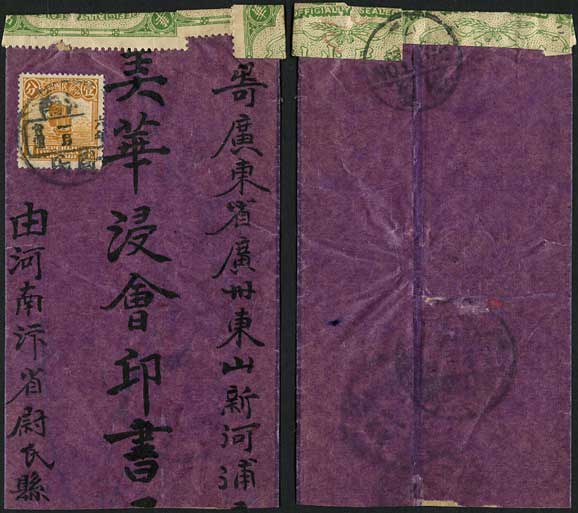 寄廣東省廣州東山新河浦
美華浸會印書
由河南汴省尉氏縣
OFFICIALLY SEALED